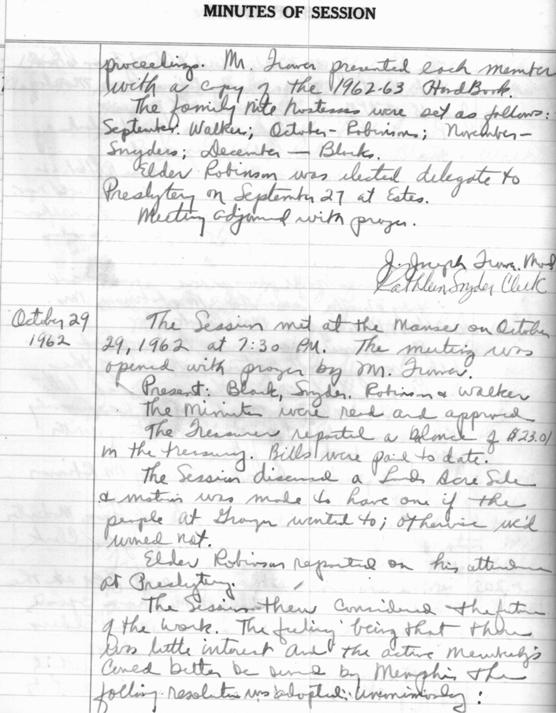 MINUTES OF SESSION
proceedings. Mr. Trower presented each member
with a copy of the 1962-63 HandBook.
The family nite hostesses were set as follows:
September. Walkers; October- Robinsons; November-
Snyders; December — Blacks.
Elder Robinson was elected delegate to
Presbytery on September 27 at Estes.
Meeting adjourned with prayer.
J. Joseph Trower. Mod
Kathleen Snyder Clerk
October 29
1962
The Session met at the Manse on October
29, 1962 at 7:30 PM. The meeting was
opened with prayer by Mr. Trower.
Present: Black, Snyder, Robinson & Walker
The Minutes were read and approved
The Treasurer reported a balance of $23.01
in the treasury. Bills were paid to date.
The Session discussed a Lords Acre Sale
& motion was made to have one if the
people at wanted to; otherwise we'd
not.
Elder Robinson reported on his attendance
at Presbytery.
The Session then considered the future
of the work. The feeling being that there
was little interest and the active
could better be served by Memphis the
following resolution was adopted unanimously: